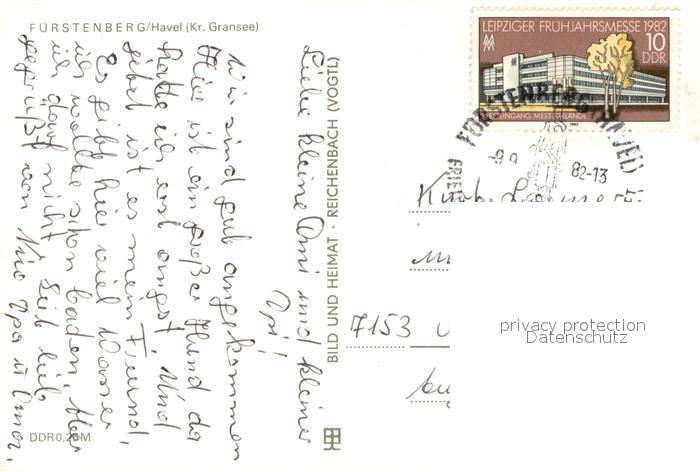 FÜRSTENBERG/Havel (Kr. Gransee)
Liebe kleine Omi und kleiner
Opi!
Wir sind gut angekommen
Hier ist ein großer Hund da
hatte ich erst angst. Und
jetzt ist es mein Freund,
Es gibt hier viel Wasser
ich wollte schon baden aber
ich darf nicht. Seit lieb
gegrüßt von Nico Opa u Omar.
DDR 0,20 M
BILD UND HEIMAT · REICHENBACH (VOGTL)
LEIPZIGER FRÜHJAHRSMESSE 1982
10
DDR
WESTEINGANG MESSEGELÄNDE
1982
FÜRSTENBERG (HAVEL) 1
-9.9
82-13
7153
privacy protection
Datenschutz